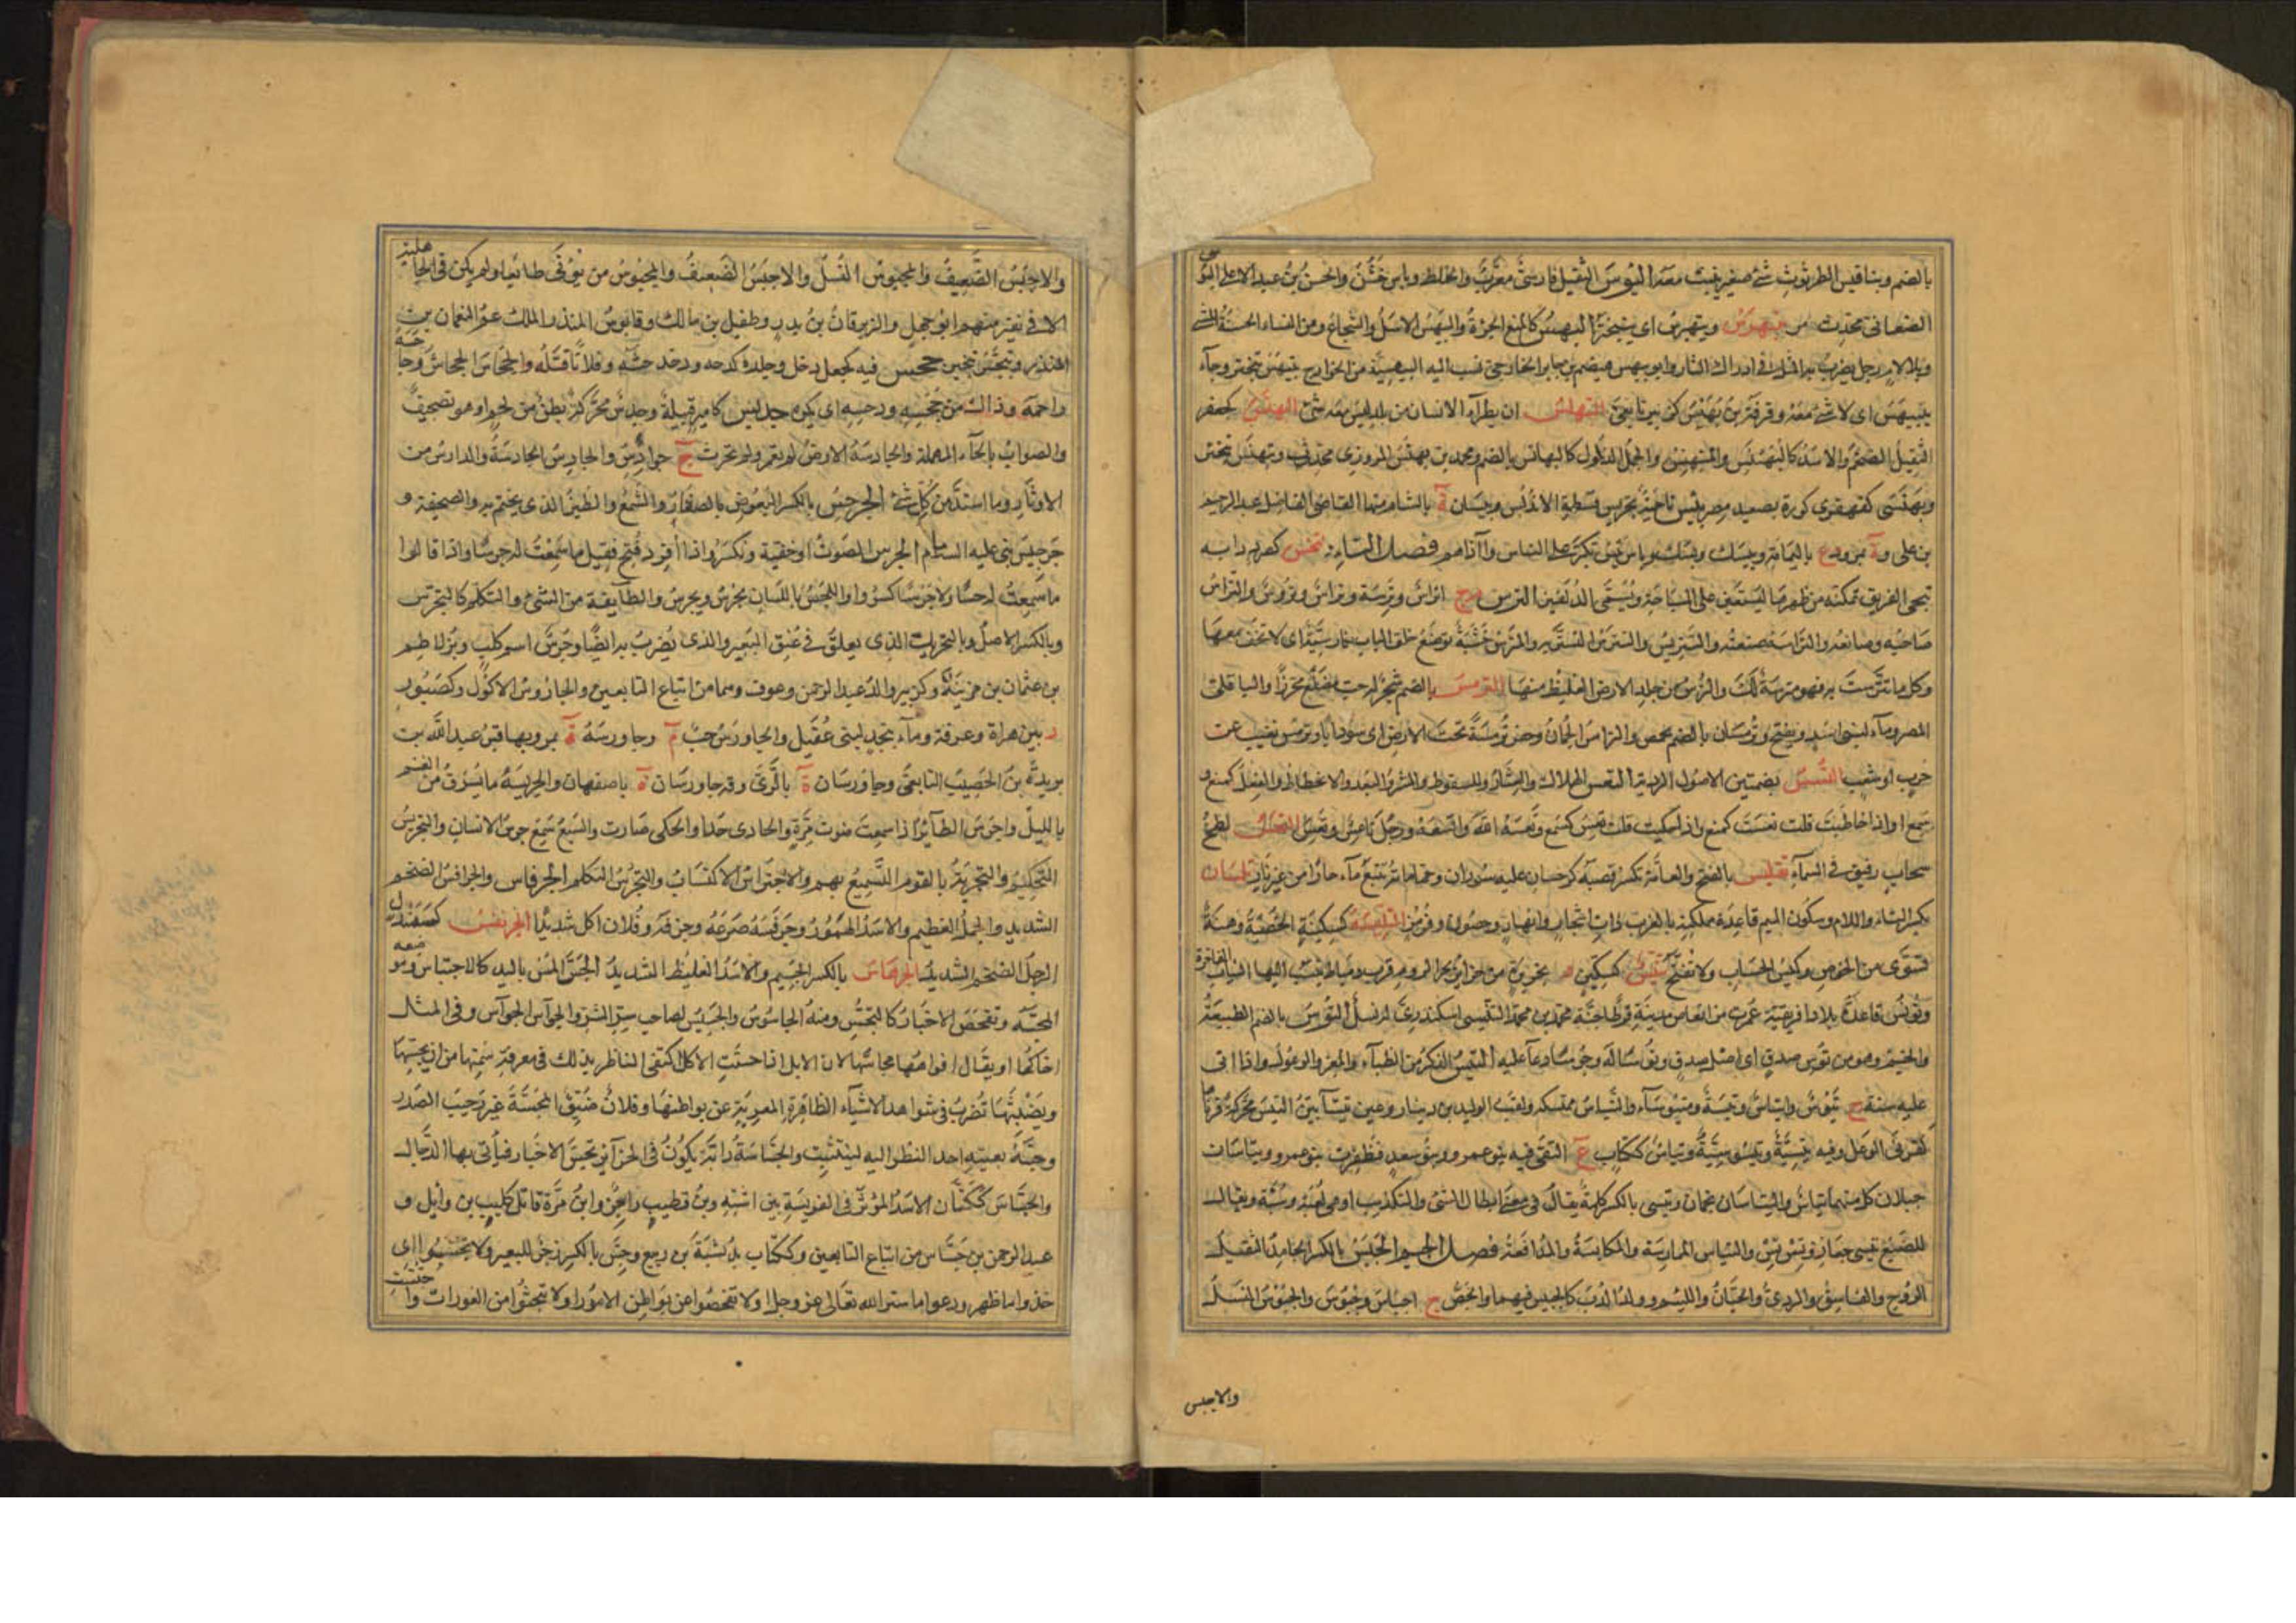 بالضم وبناقيس الطرثوث شئ صغير ينبت معه البؤس الثقيل فارسى معرب والخلط وباس خشن والحسن بن عبد الاعلى البوسى
الصنعانى محدث مر يتبهرس ويتبهرس اى يتبخترا البهس كالمنع الجرءة والبيهس الاسد والشجاع ومن النساء الحسنة المشى
وبلا لام رجل يضرب به المثل فى ادراك الثار وابو بيهس هيصم بن جابر الخارجى نسب اليه البيهسية من الخوارج يتبيهس يتبختر وجآء
يتبيهس اى لا شئ معه وقرفة بن بهيس كزبير تابعى التبهلس ان يطرأ الانسان من بلد ليس معه شئ البهنس كجعفر
الثقيل الضخم والاسد كالبهنس والمتبهنس والجمل الذلول كالبهانس بالضم ومحمد بن بهنس المروزى محدث وتبهنس يتبختر
وبهنسى كقهقرى كورة بصعيد مصر بيس ناحية بسرقسطة الاندلس وبيسان ة بالشام منها القاضى الفاضل عبد الرحيم
بن على وة بمرو وع باليمامة وبيسك وباس يبيس تكبر على الناس واذاهم فصل التاء تخس كصرد دابه
تنجى الغريق تمكنه من ظهرها ليستعين على السباحة وتسمى الدلفين الترس م ج اتراس وترسة وتراس وتروس والتراس
صاحبه وصانعه والتراسة صنعته والتتريس والتترس التستر به والمترس خشبة توضع خلف الباب فارسية اى لا تخف معها
وكل ما تترست به فهو مترسة لك والترس من جلد الارض الغليظ منها الترمس بالضم شجر له حب مضلع محزز والباقلى
المصرى وماء لبنى اسد ويفتح وترمسان بالضم بحمص والترامس الجمان وحفر ترمسة تحت الارض اى سردابا وترمس تغيب عن
حرب او شغب التسس بضمتين الاصول الردية التعس الهلاك والعثار والسقوط والشر والبعد والانحطاط والفعل كمنع و
سمع او اذا خاطبت قلت تعست كمنع واذا حكيت قلت تعس كسمع وتعسه الله واتعسه ورجل تاعس وتعس التغس لطخ
سحاب رقيق فى السمآء تفليس بالفتح والعامة تكسر قصبة كرجستان عليها سوران وحماماتها تنبع مآء حارا من غير نار تلمسان
بكسر التاء واللام وسكون الميم قاعدة مملكة بالغرب ذات اشجار وانهار وحصون وفرض التليسة كسكينة الخصية وهنة
تسوى من الخوص وكيس الحساب ولا تفتح تنيس كسكين د بجزيرة من جزائر بحر الروم قرب دمياط ينسب اليها الثياب الفاخرة
وتونس قاعدة بلاد افريقية عمرت من انقاض مدينة قرطاجنة محمد بن محمد التنسى اسكندرى فاضل التوس بالضم الطبيعة
والخيم وهو من توس صدق اى اصل صدق وتوسا له وجوسا دعآ عليه التيس الذكر من الظبآء والمعز والوعول واذا اتى
عليه سنة ج تيوس واتياس وتيسة ومتيوسآء والتياس ممسكه ولقب الوليد بن دينار وعنز تيسآء بينة التيس محركة قرناها
كقرنى الوعل وفيه تيسية وتيسوسية وتياس ككتاب ع التقى فيه بنو عمرو وبنو سعد فظفرت بنو عمرو وتياسان
جبلان كل منهما تياس والتياسان نجمان وتيسى بالكسر كلمة يقال فى معنى ابطال الشئ والتكذيب او هى لعبة وسبة ويقال
للضبع تيسى جعار وتيس تيس والتياس الممارسة والمكابسة والمدافعة فصل الجيم الجبس بالكسر الجامد الثقيل
الروح والفاسق والردئ والجبان واللئيم وولد الدب كالجبيس فيهما والجص ج اجباس وجبوس والجبوس الفسل
والاجبس
والاجبس الضعيف والمجبوس الفسل والاجبس الضعيف والمجبوس من يؤتى طائعا ولم يكن فى الجاهلية
الا فى نفر منهم ابو جهل والزبرقان بن بدر وطفيل بن مالك وقابوس المنذر الملك عم النعمان بن
المنذر وتجبس تبختر جحس فيه كجعل دخل وجلده كدحه وخدشه وفلانا قتله والجحاس الجحاش وجاحسه
زاحمه وذاك من جحسه ودحسه اى مكره جديس كامير قبيلة وجدس محركة بطن من لخم او هو تصحيف
والصواب بالحآء المهملة والجادسة الارض لم تعمر ولم تحرث ج جوادس والجادس الجادسة والدارس من
الاوثار وما اشتد من كل شئ الجرجس بالكسر البعوض بالصغار والشمع والطين الذى يختم به والصحيفة و
جرجيس نبى عليه السلام الجرس الصوت او خفيه ونكسر واذا افرد فتح فقيل ما سمعت له جرسا واذا قالوا
ما سمعت له حسا ولا جرسا كسروا والجرس باللسان يجرس ويجرس والطآئفة من الشئ والتكلم كالتجرس
وبالكسر الاصل وبالتحريك الذى يعلق فى عنق البعير والذى يضرب به ايضا وجرس اسم كلب وبن لاطم
بن عثمان بن مزينة وكزبير والد عبد الرحمن وعوف وهما من اتباع التابعين والجاروس الاكول وكصبور
د بين هراة وغزنة ومآء بنجد لبنى عقيل والجاورس حب م وجاورسة ة بمرو بها قبر عبد الله بن
بريدة بن الحصيب التابعى وجاورسان ة بالرى وقه جاورسان ة باصفهان والجريسة ما يسرق من الغنم
بالليل واجرس الطآئر اذا سمعت صوت مره والحادى حدا والحلى صارت والسبع سمع جرس الانسان والتجريس
التحكيم والتجربة بالقوم التسميع بهم والاجتراس الاكتساب والتجرس التكلم الجرفاس والجرافس الضخم
الشديد والجمل العظيم والاسد الهصور وجرفسه صرعه وجرفه وفلان اكل شديدا الجرنفس كسمندل
الرجل الضخم الشديد الجرهاس بالكسر الجسيم والاسد الغليظ الشديد الجس المس باليد كالاجتساس وموضعه
المجسه وتفحص الاخبار كالتجسس ومنه الجاسوس والجسيس لصاحب سر الشر والجواس الحواس وفى المثل
احناكها او يقال افواهها مجاسها لان الابل اذا احسنت الاكل اكتفى الناظر بذلك فى معرفة سمنها من ان يجسها
ويضبثها تضرب فى شواهد الاشيآء الظاهرة المعربة عن بواطنها وفلان ضيق المجسة غير رحيب الصدر
وجسه بعينه احد النظر اليه ليتثبت والجساسة دابة يكون فى الجزآئر تجس الاخبار فيأتى بها الدجال
والجساس ككتان الاسد المؤثر فى الفريسة ببراثنه وبن قطيب راجز وابن مرة قاتل كليب بن وائل و
عبد الرحمن بن جساس من اتباع التابعين وككتاب بن نشبة بن ربيع وجس بالكسر زجر للبعير ولا تجسسوا اى
خذوا ما ظهر ودعوا ما ستر الله تعالى عز وجل او لا تفحصوا عن بواطن الامور او لا تبحثوا من العورات واجتست